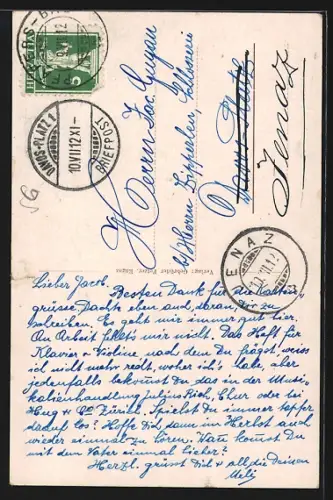 HELVETIA
DAVOS-PLATZ 1
10.VII.12.XI-
BRIEFPOST
JENAZ
Herrn Jac.
b/Herrn Zipperlen, Schlosserei
Davos-Platz
Jenaz
Verlag: Gebrüder
Lieber Jacob.
Besten Dank für die Karten-
grüsse. Dachte eben auch daran, Dir zu
schreiben. Es geht mir immer gut hier.
An Arbeit fehlts mir nicht. Das Heft für
Klavier & Violine, nach dem Du frägst, weiss
ich nicht mehr recht, woher ich's habe, aber
jedenfalls bekommst Du das in der Musi-
kalienhandlung Julius Rich, Chur oder bei
Hug & Co Zürich. Spielst Du immer tapfer
darauf los? Hoffe Dich dann im Herbst auch
wieder einmal zu hören. Wann kommst Du
mit dem Vater einmal hieher?
Herzl. grüsst Dich & all die deinen